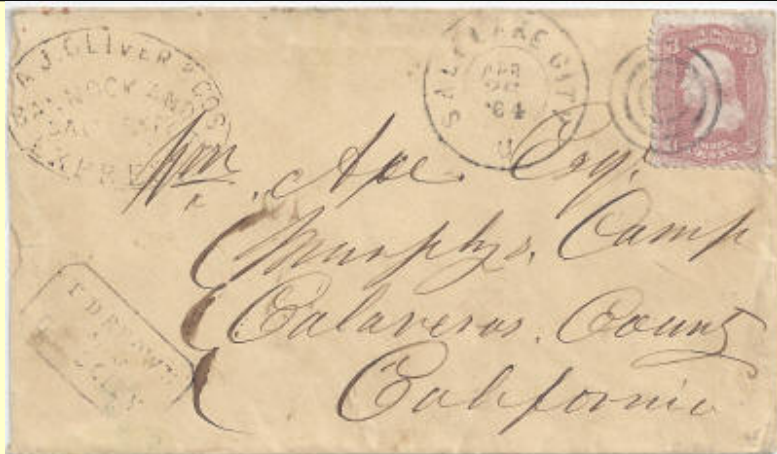 A. J. OLIVER & CO'S
BANNOCK AND
SALT LAKE
EXPRESS
SALT LAKE CITY
APR
'64
U
3 3
Wm. Ape. Esq.
Murphys. Camp
Calaveras. County
California